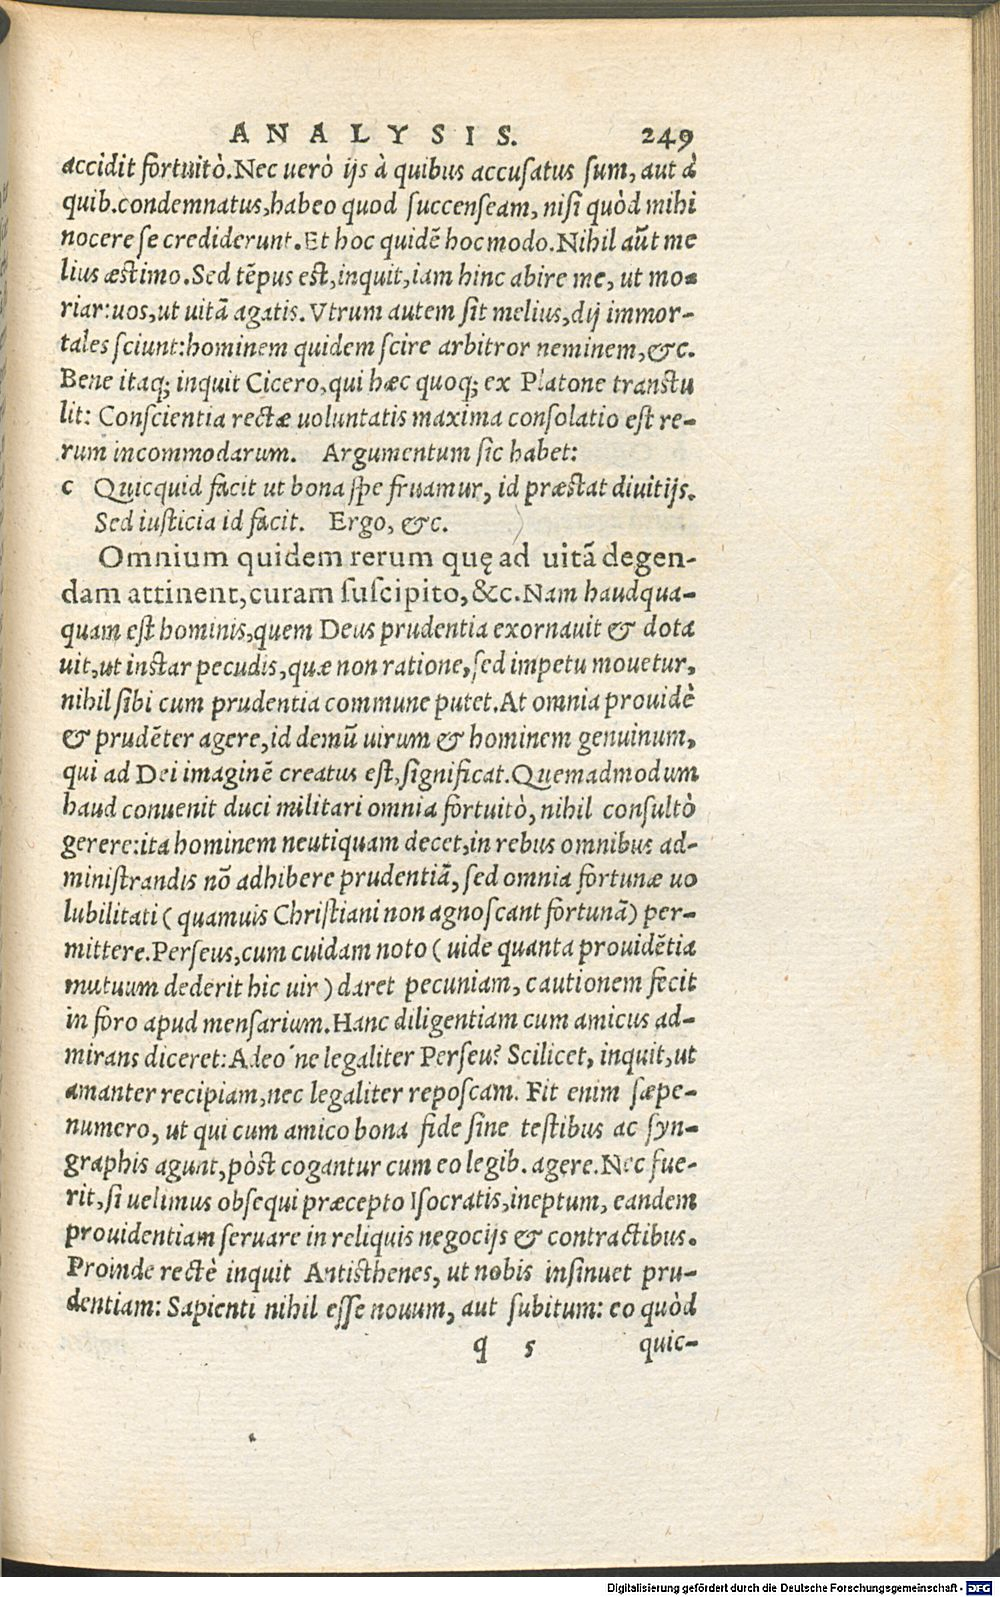 ANALYSIS. 249
accidit fortuitò. Nec uerò ijs à quibus accusatus sum, aut à
quib. condemnatus, habeo quod succenseam, nisi quòd mihi
nocere se crediderunt. Et hoc quidē hoc modo. Nihil aūt me
lius æstimo. Sed tēpus est, inquit, iam hinc abire me, ut mo-
riar: uos, ut uitā agatis. Vtrum autem sit melius, dij immor-
tales sciunt: hominem quidem scire arbitror neminem, &c.
Bene itaq; inquit Cicero, qui hæc quoq; ex Platone transtu
lit: Conscientia rectæ uoluntatis maxima consolatio est re-
rum incommodarum. Argumentum sic habet:
c Quicquid facit ut bona spe fruamur, id præstat diuitijs.
Sed iusticia id facit. Ergo, &c.
Omnium quidem rerum quę ad uitā degen-
dam attinent, curam suscipito, &c. Nam haudqua-
quam est hominis, quem Deus prudentia exornauit & dota
uit, ut instar pecudis, quæ non ratione, sed impetu mouetur,
nihil sibi cum prudentia commune putet. At omnia prouidè
& prudēter agere, id demū uirum & hominem genuinum,
qui ad Dei imaginē creatus est, significat. Quemadmodum
haud conuenit duci militari omnia fortuitò, nihil consultò
gerere: ita hominem neutiquam decet, in rebus omnibus ad-
ministrandis nō adhibere prudentiā, sed omnia fortunæ uo
lubilitati (quamuis Christiani non agnoscant fortunā) per-
mittere. Perseus, cum cuidam noto (uide quanta prouidētia
mutuum dederit hic uir) daret pecuniam, cautionem fecit
in foro apud mensarium. Hanc diligentiam cum amicus ad-
mirans diceret: Adeo'ne legaliter Perseu? Scilicet, inquit, ut
amanter recipiam, nec legaliter reposcam. Fit enim sæpe-
numero, ut qui cum amico bona fide sine testibus ac syn-
graphis agunt, pòst cogantur cum eo legib. agere. Nec fue-
rit, si uelimus obsequi præcepto Isocratis, ineptum, eandem
prouidentiam seruare in reliquis negocijs & contractibus.
Proinde rectè inquit Antisthenes, ut nobis insinuet pru-
dentiam: Sapienti nihil esse nouum, aut subitum: eo quòd
q 5 quic-
Digitalisierung gefördert durch die Deutsche Forschungsgemeinschaft - DFG